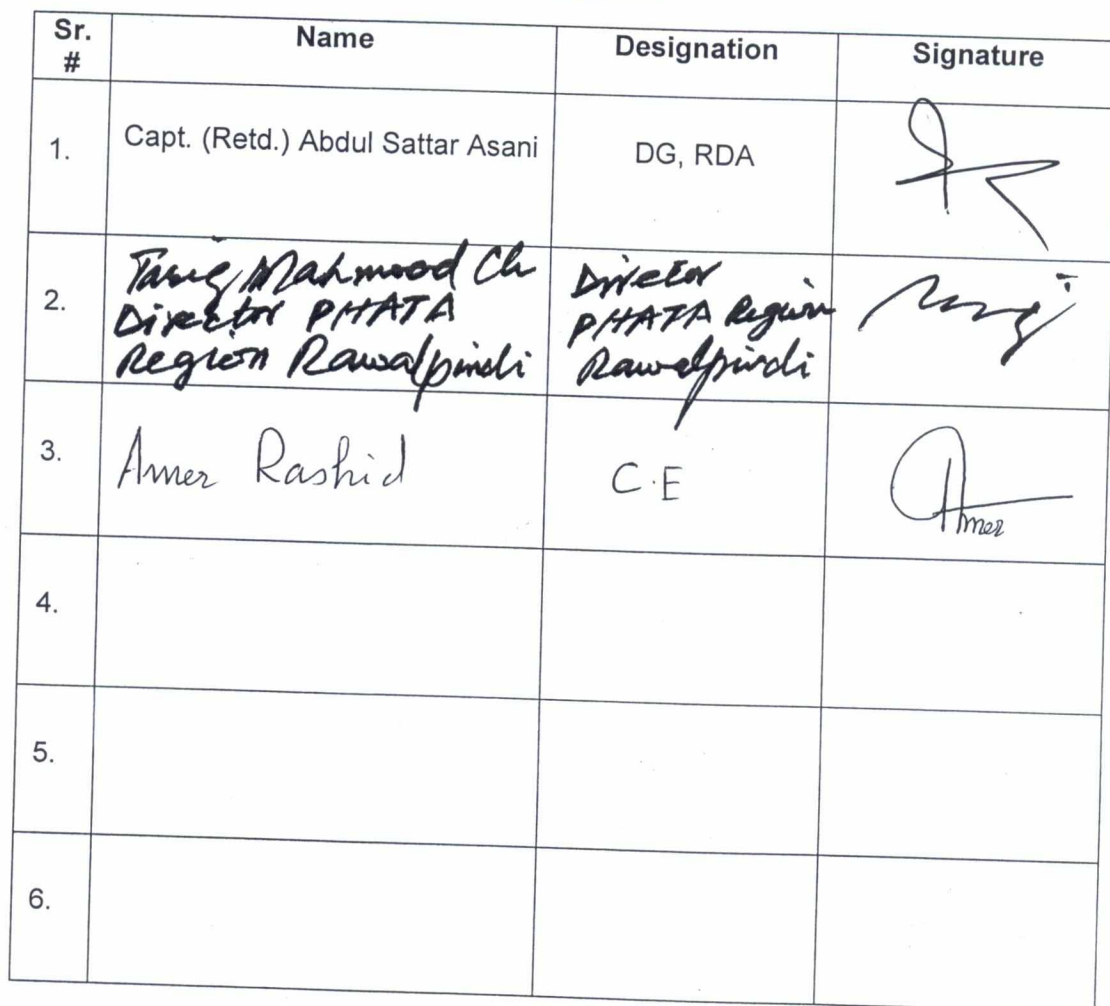 Sr. # Name Designation Signature
1. Capt. (Retd.) Abdul Sattar Asani DG, RDA
2. Tariq Mahmood Ch
Director PHATA
Region Rawalpindi
Director
PHATA Region
Rawalpindi
3. Amer Rashid C.E Amer
4.
5.
6.